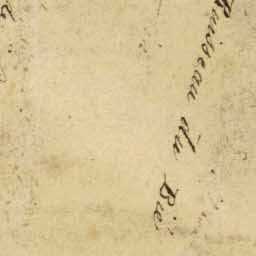 Ruisseau du Bié